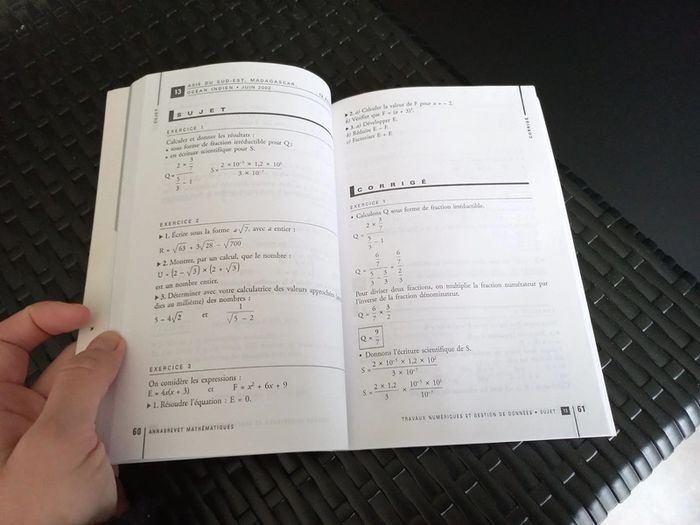 SUJET
13
ASIE DU SUD-EST, MADAGASCAR,
OCÉAN INDIEN • JUIN 2002
SUJET
EXERCICE 1
Calculer et donner les résultats :
• sous forme de fraction irréductible pour Q ;
• en écriture scientifique pour S.
Q = (2 × 3/7) / (5/3 − 1) S = (2 × 10⁻⁵ × 1,2 × 10²) / (3 × 10⁻⁷)
EXERCICE 2
▶ 1. Écrire sous la forme a√7, avec a entier :
R = √63 + 3√28 − √700
▶ 2. Montrer, par un calcul, que le nombre :
U = (2 − √3) × (2 + √3)
est un nombre entier.
▶ 3. Déterminer avec votre calculatrice des valeurs approchées
dies au millième) des nombres :
5 − 4√2 et 1/√(5 − 2)
EXERCICE 3
On considère les expressions :
E = 4x(x + 3) et F = x² + 6x + 9
▶ 1. Résoudre l'équation : E = 0.
60 ANNABREVET MATHÉMATIQUES
▶ 2. a) Calculer la valeur de F pour x = − 2.
b) Vérifier que F = (x + 3)².
▶ 3. a) Développer E.
b) Réduire E − F.
c) Factoriser E + F.
CORRIGÉ
CORRIGÉ
EXERCICE 1
• Calculons Q sous forme de fraction irréductible.
Q = (2 × 3/7) / (5/3 − 1)
Q = (6/7) / (5/3 − 3/3) = (6/7) / (2/3)
Pour diviser deux fractions, on multiplie la fraction numérateur par
l'inverse de la fraction dénominateur.
Q = 6/7 × 3/2
Q = 9/7
• Donnons l'écriture scientifique de S.
S = (2 × 10⁻⁵ × 1,2 × 10²) / (3 × 10⁻⁷)
S = (2 × 1,2)/3 × (10⁻⁵ × 10²)/10⁻⁷
TRAVAUX NUMÉRIQUES ET GESTION DE DONNÉES • SUJET 13 61